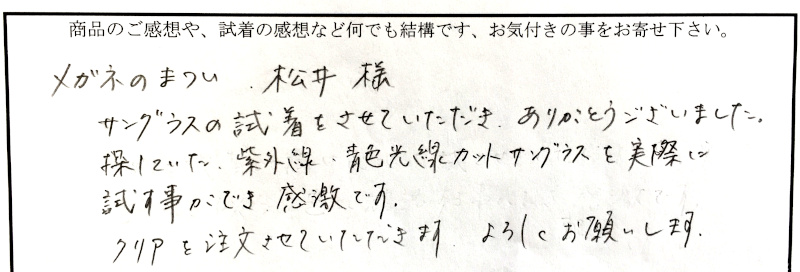 商品のご感想や、試着の感想など何でも結構です、お気付きの事をお寄せ下さい。
メガネのまつい 松井 様
サングラスの試着をさせていただき、ありがとうございました。
探していた、紫外線、青色光線カットサングラスを実際に
試す事ができ、感激です。
クリアを注文させていただきます。よろしくお願いします。